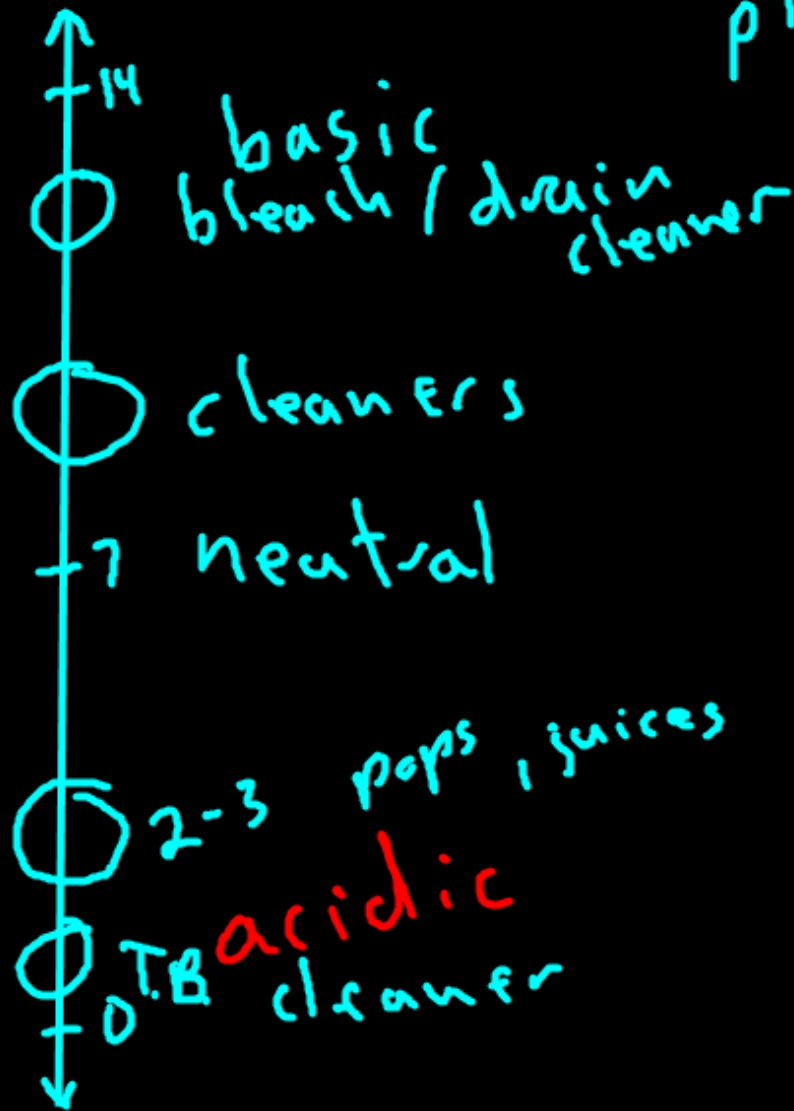 14
basic
bleach / drain
cleaner
cleaners
7 neutral
2-3 pops, juices
acidic
T.B. cleaner
0